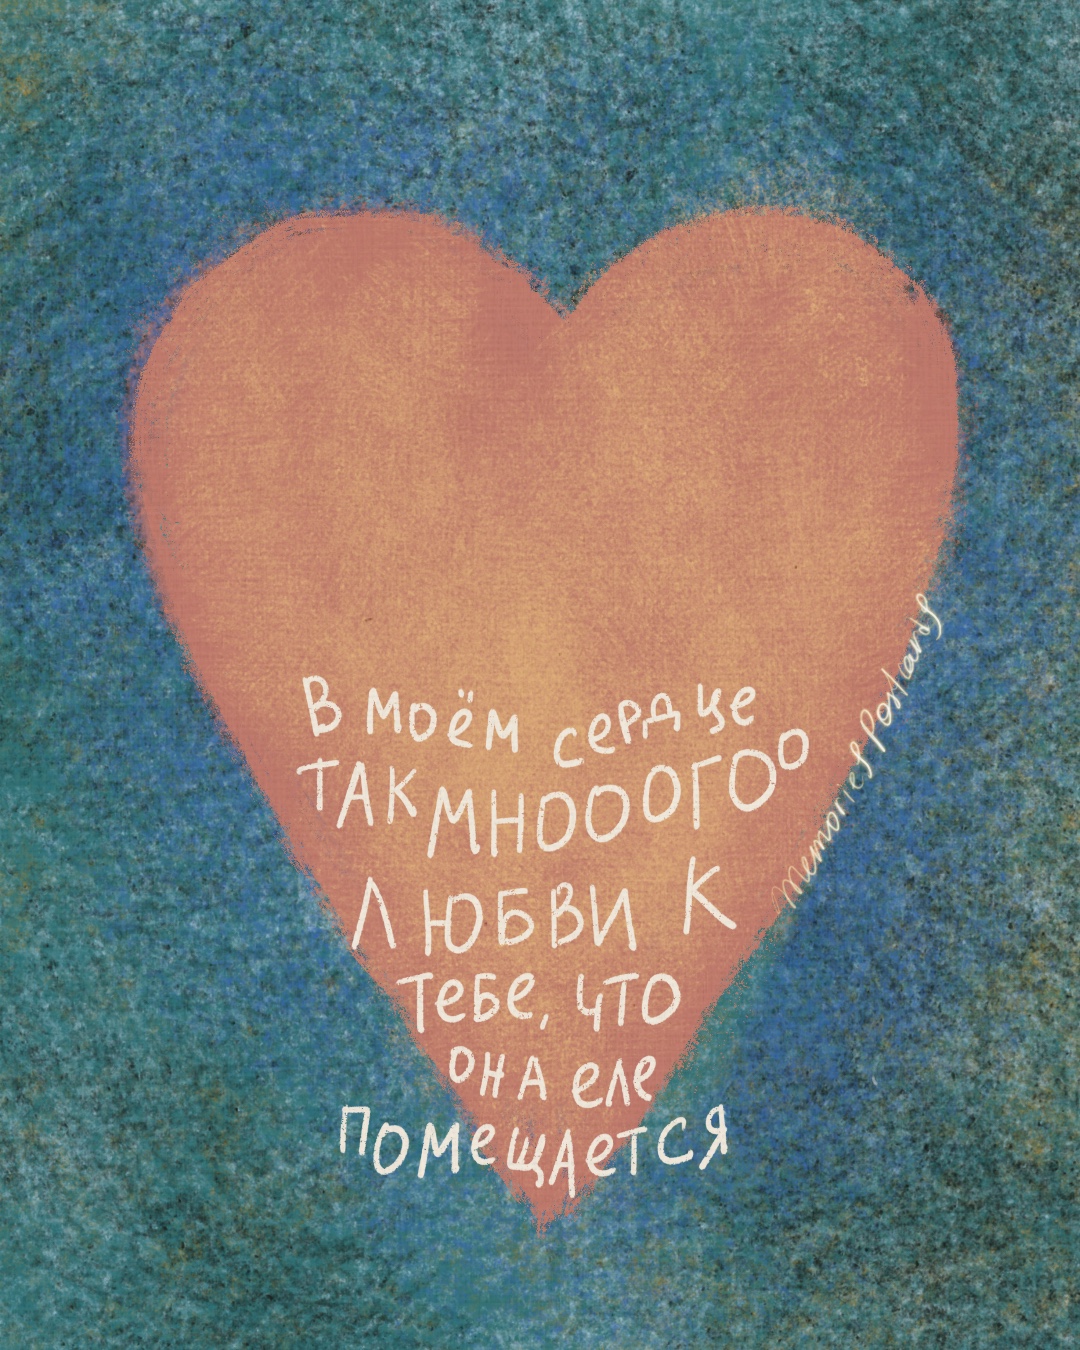 В моём сердце
ТАК МНОООГОО
ЛЮБВИ К
Тебе, что
она еле
помещается
Memories Postcards